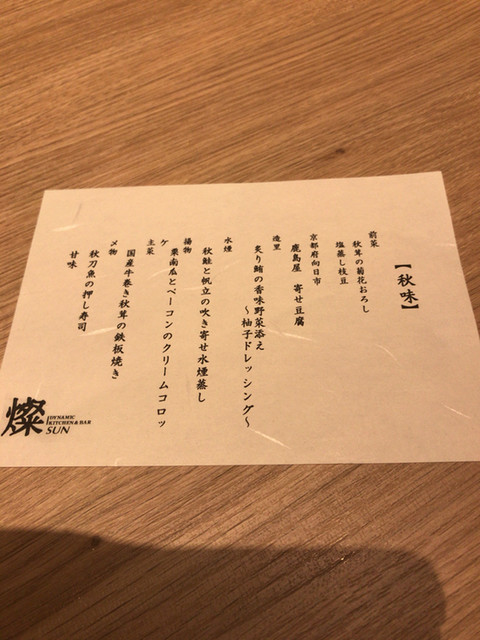 【秋味】
前菜
秋茸の菊花おろし
塩蒸し枝豆
京都府向日市
鹿島屋 寄せ豆腐
造里
炙り鮪の香味野菜添え
～柚子ドレッシング～
水煙
秋鮭と帆立の吹き寄せ水煙蒸し
揚物
栗南瓜とベーコンのクリームコロッ
ケ
主菜
国産牛巻き秋茸の鉄板焼き
〆物
秋刀魚の押し寿司
甘味
燦
DYNAMIC
KITCHEN & BAR
SUN